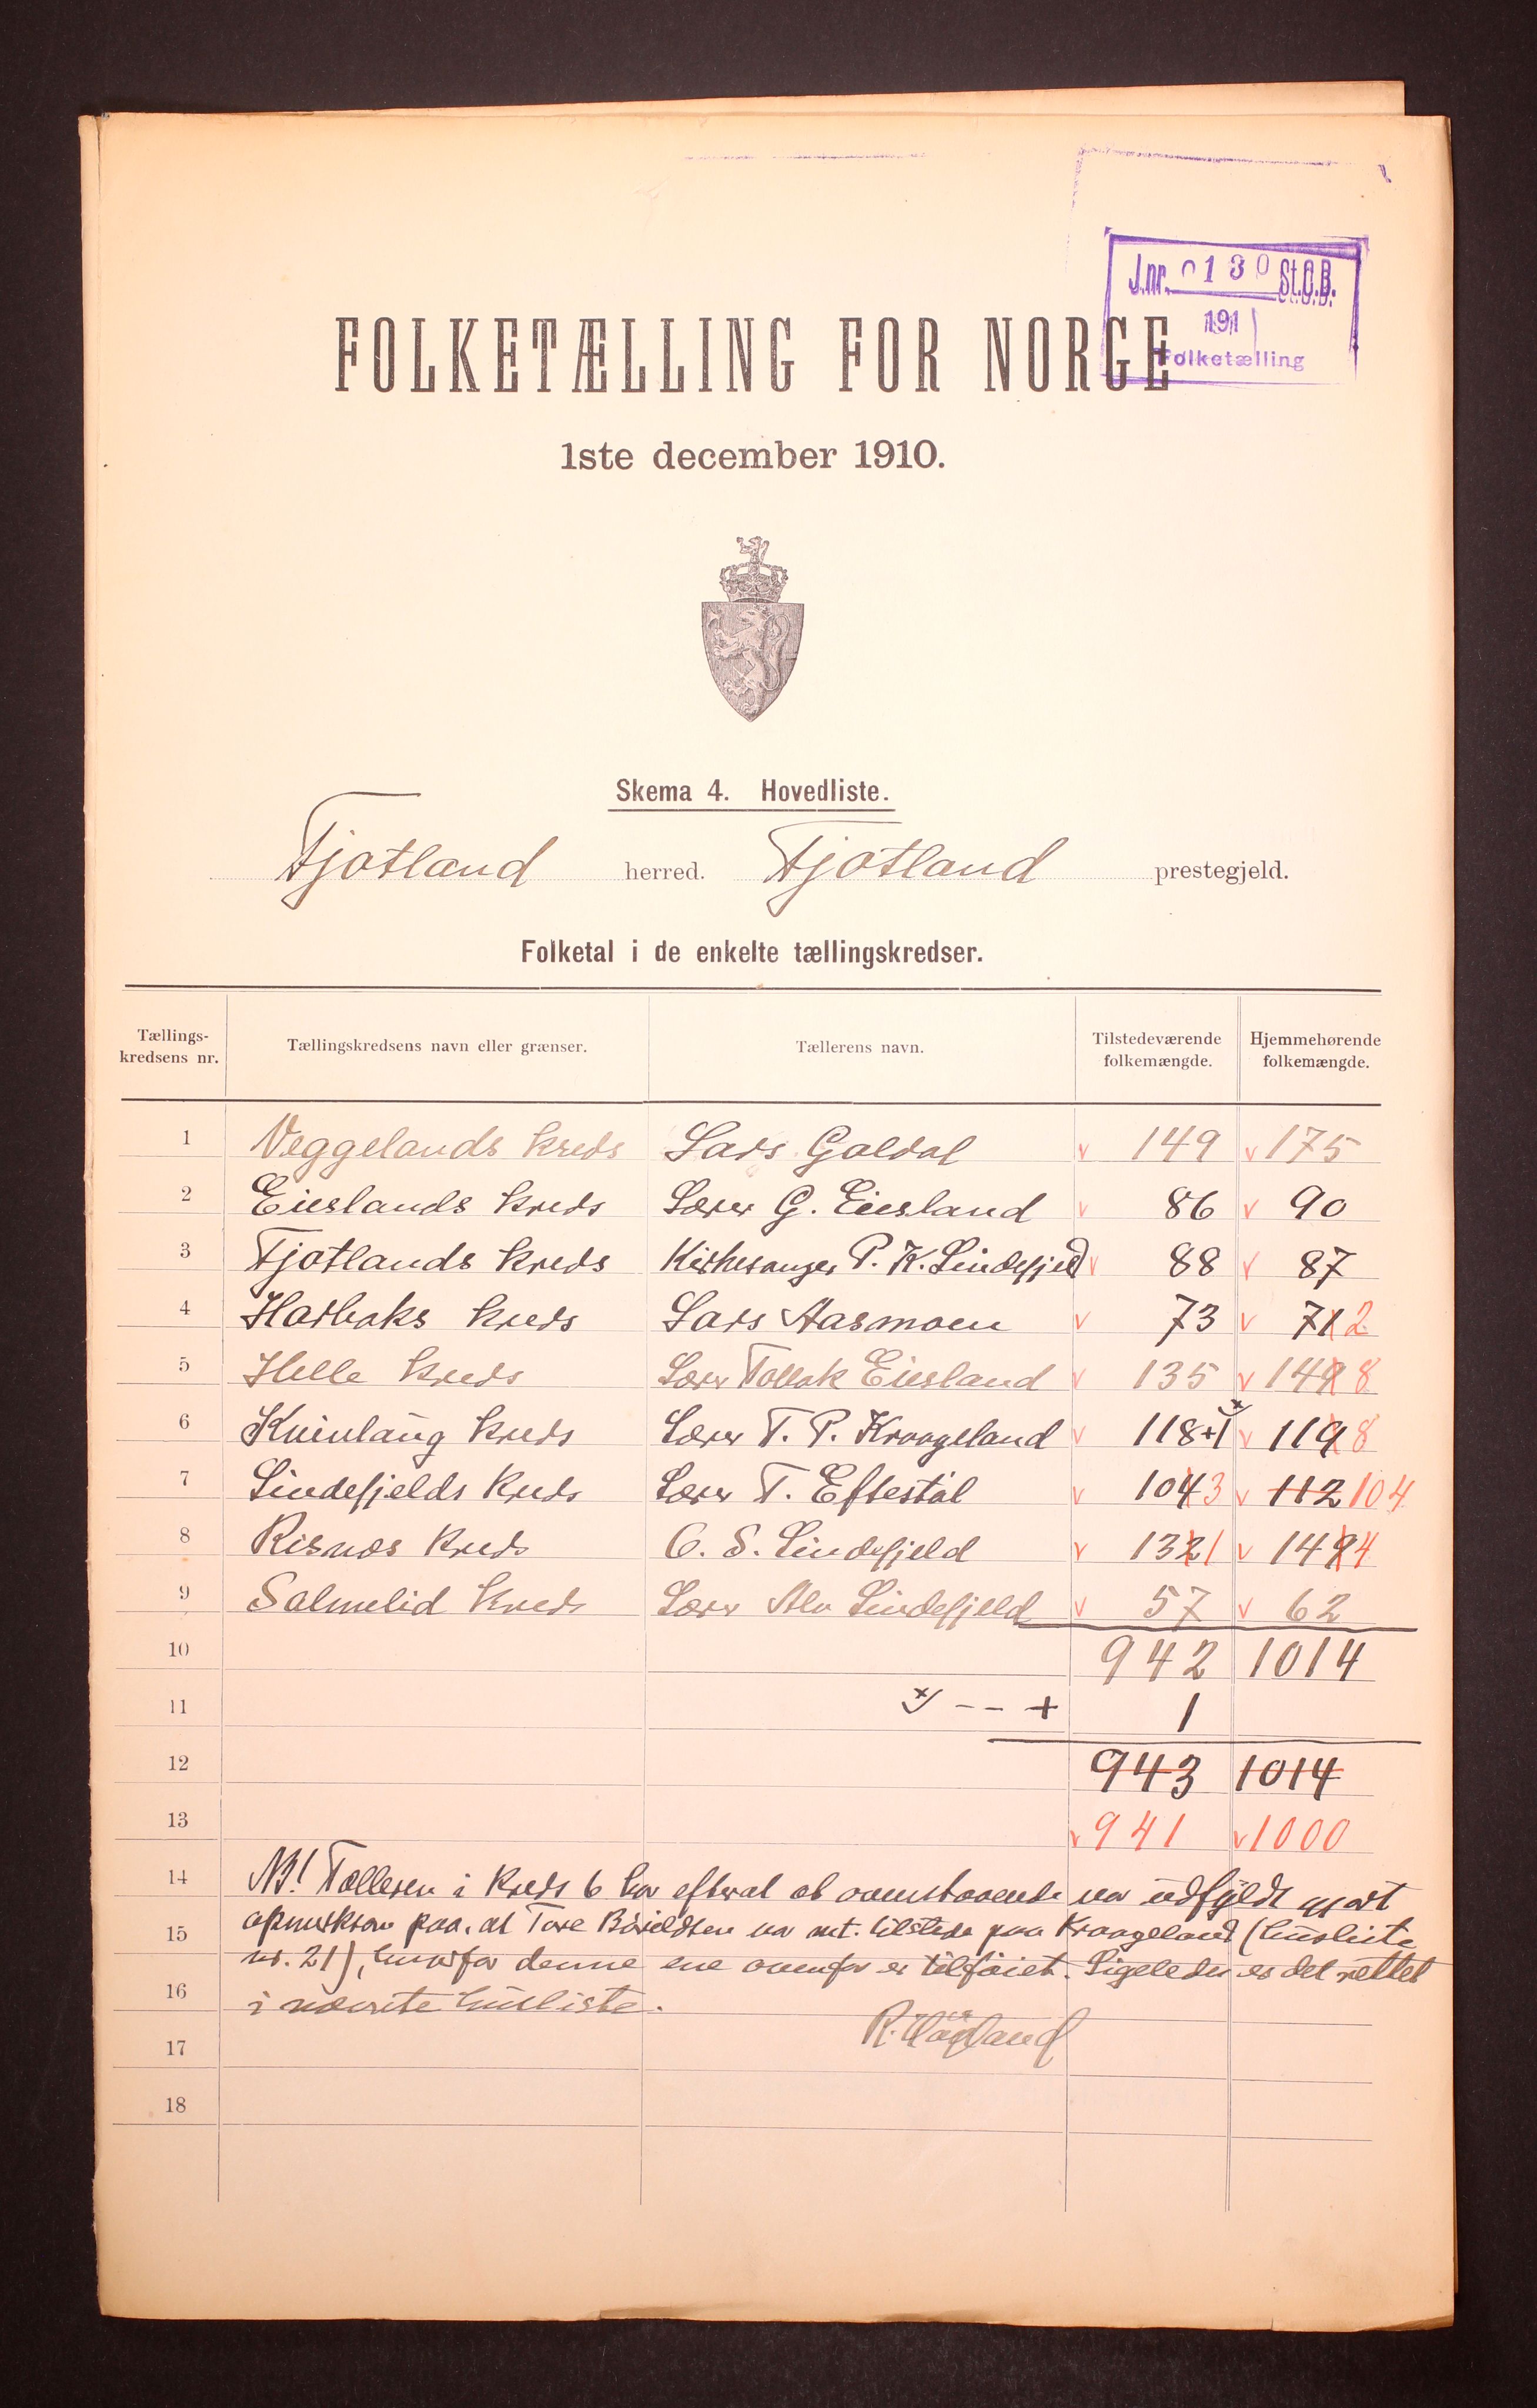 J.nr. 0130 St.O.B.
191
Folketælling
FOLKETÆLLING FOR NORGE
1ste december 1910.
Skema 4. Hovedliste.
Fjotland herred. Fjotland prestegjeld.
Folketal i de enkelte tællingskredser.
Tællings-kredsens nr. Tællingskredsens navn eller grænser. Tællerens navn. Tilstedeværende folkemængde. Hjemmehørende folkemængde.
1 Veggelands kreds Lars Galdal v 149 v 175
2 Eieslands kreds Lærer G. Eiesland v 86 v 90
3 Fjotlands kreds Kirkesanger P. K. Lindefjeld v 88 v 87
4 Harbaks kreds Lars Aasmoen v 73 v 71 2
5 Helle kreds Lærer Tollak Eiesland v 135 v 149 8
6 Kvinlaug kreds Lærer T. P. Kraageland v 118+1 x) v 119 8
7 Lindefjelds kreds Lærer T. Eftestøl v 104 3 v 112 104
8 Risnes kreds O. S. Lindefjeld v 132 1 v 149 4
9 Salmelid kreds Lærer Alv Lindefjeld v 57 v 62
10 942 1014
11 x) - - + 1
12 943 1014
13 v 941 v 1000
14 NB! Tælleren i kreds 6 har efterat ovenstaaende var udfyldt gjort
15 opmerksom paa, at Tore Bårdsen var mt. tilstede paa Kraageland (husliste
nr. 21), hvorfor denne ene ovenfor er tilføiet. Ligeledes er det rettet
16 i nævnte husliste.
17
18